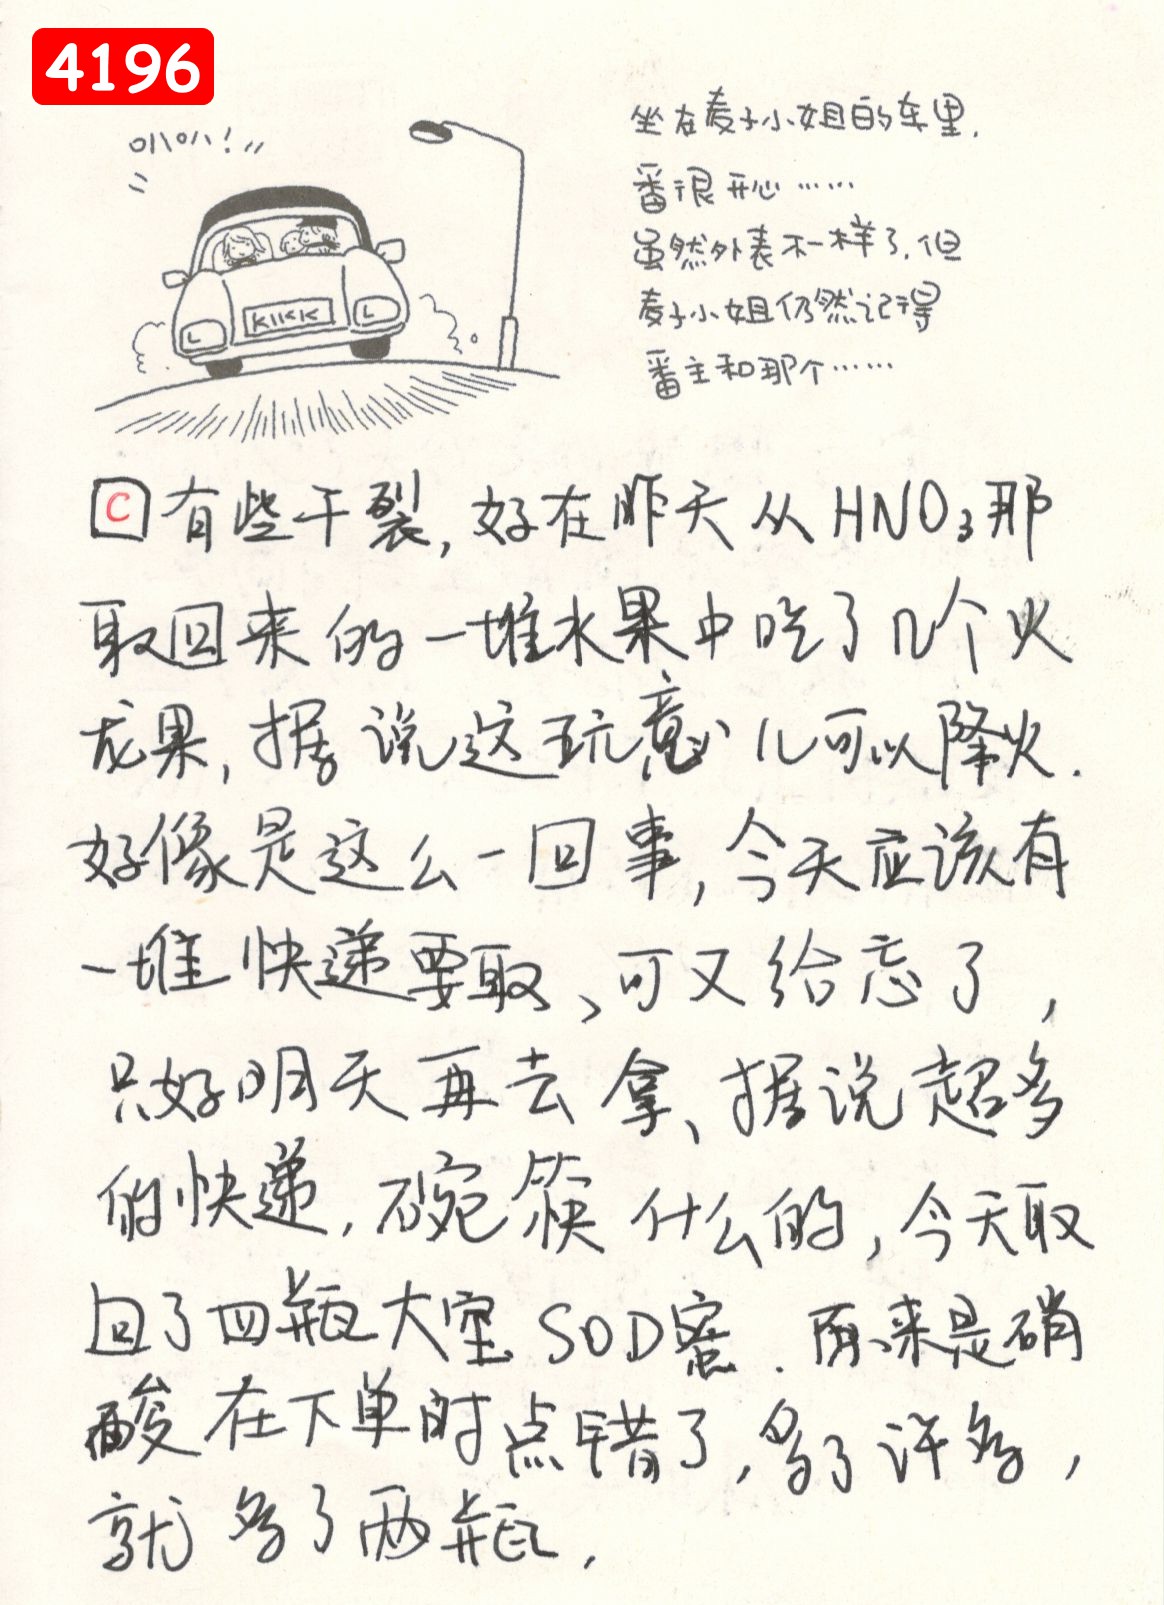 4196
叭叭！
坐在麦子小姐的车里.
番很开心……
虽然外表不一样了,但
麦子小姐仍然记得
番主和那个……
KIKK
L
L
C有些干裂,好在昨天从HNO3那
取回来的一堆水果中吃了几个火
龙果,据说这玩意儿可以降火.
好像是这么一回事,今天应该有
一堆快递要取、可又给忘了,
只好明天再去拿、据说超多
的快递,碗筷什么的,今天取
回了四瓶大宝SOD蜜.原来是硝
酸在下单时点错了,多了许多,
就多了两瓶,